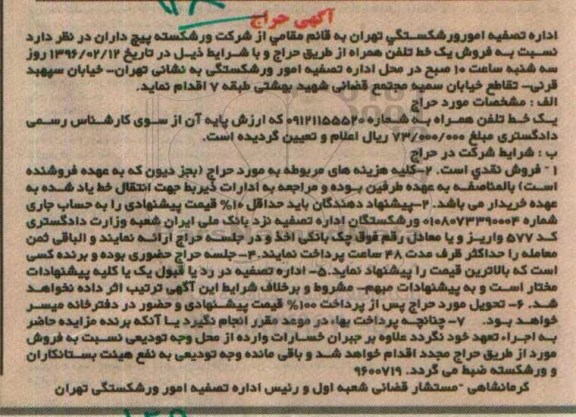 آگهی حراج
اداره تصفیه امورورشکستگی تهران به قائم مقامی از شرکت ورشکسته پیچ داران در نظر دارد
نسبت به فروش یک خط تلفن همراه از طریق حراج و با شرایط ذیل در تاریخ ۱۳۹۶/۰۲/۱۲ روز
سه شنبه ساعت ۱۰ صبح در محل اداره تصفیه امور ورشکستگی به نشانی تهران- خیابان سپهبد
قرنی- تقاطع خیابان سمیه مجتمع قضائی شهید بهشتی طبقه ۷ اقدام نماید.
الف : مشخصات مورد حراج
یک خط تلفن همراه به شماره ۰۹۱۲۱۱۵۵۵۲۰ که ارزش پایه آن از سوی کارشناس رسمی
دادگستری مبلغ ۷۳/۰۰۰/۰۰۰ ریال اعلام و تعیین گردیده است.
ب : شرایط شرکت در حراج
۱- فروش نقدی است. ۲-کلیه هزینه های مربوطه به مورد حراج (بجز دیون که به عهده فروشنده
است) بالمناصفه به عهده طرفین بوده و مراجعه به ادارات ذیربط جهت انتقال خط یاد شده به
عهده خریدار می باشد. ۳-پیشنهاد دهندگان باید حداقل ۱۰% قیمت پیشنهادی را به حساب جاری
شماره ۰۱۰۸۰۷۳۳۹۰۰۰۴ ورشکستگان اداره تصفیه نزد بانک ملی ایران شعبه وزارت دادگستری
کد ۵۷۷ واریز و یا معادل رقم فوق چک بانکی اخذ و در جلسه حراج ارائه نمایند و الباقی ثمن
معامله را حداکثر ظرف مدت ۴۸ ساعت پرداخت نمایند. ۴-جلسه حراج حضوری بوده و برنده کسی
است که بالاترین قیمت را پیشنهاد نماید. ۵- اداره تصفیه در رد یا قبول یک یا کلیه پیشنهادات
مختار است و به پیشنهادات مبهم- مشروط و برخلاف شرایط این آگهی ترتیب اثر داده نخواهد
شد. ۶- تحویل مورد حراج پس از پرداخت ۱۰۰% قیمت پیشنهادی و حضور در دفترخانه میسر
خواهد بود. ۷- چنانچه پرداخت بهاء در موعد مقرر انجام نگیرد یا آنکه برنده مزایده حاضر
به اجراء تعهد خود نگردد علاوه بر جبران خسارات وارده از محل وجه تودیعی نسبت به فروش
مورد از طریق حراج مجدد اقدام خواهد شد و باقی مانده وجه تودیعی به نفع هیئت بستانکاران
و ورشکسته ضبط می گردد. ۹۶۰۰۷۱۹
کرمانشاهی -مستشار قضائی شعبه اول و رئیس اداره تصفیه امور ورشکستگی تهران